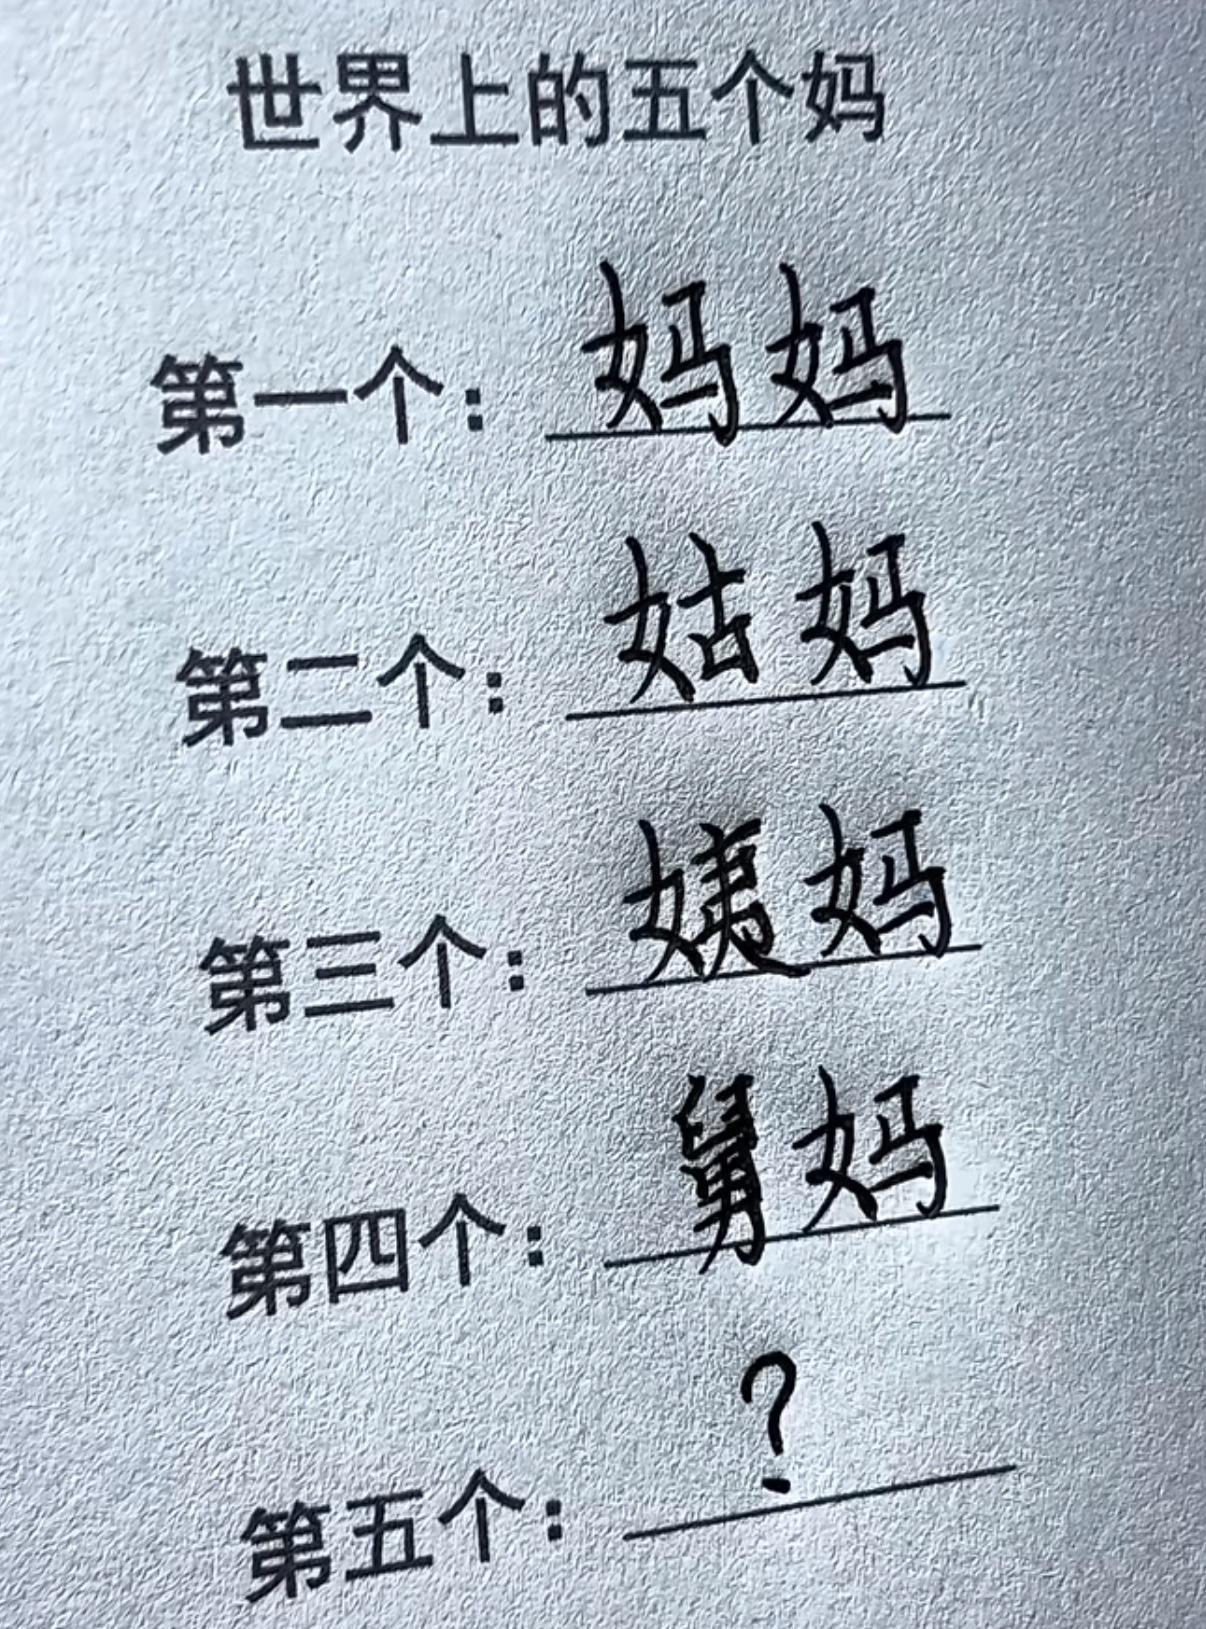 世界上的五个妈
第一个：妈妈
第二个：姑妈
第三个：姨妈
第四个：舅妈
第五个：？